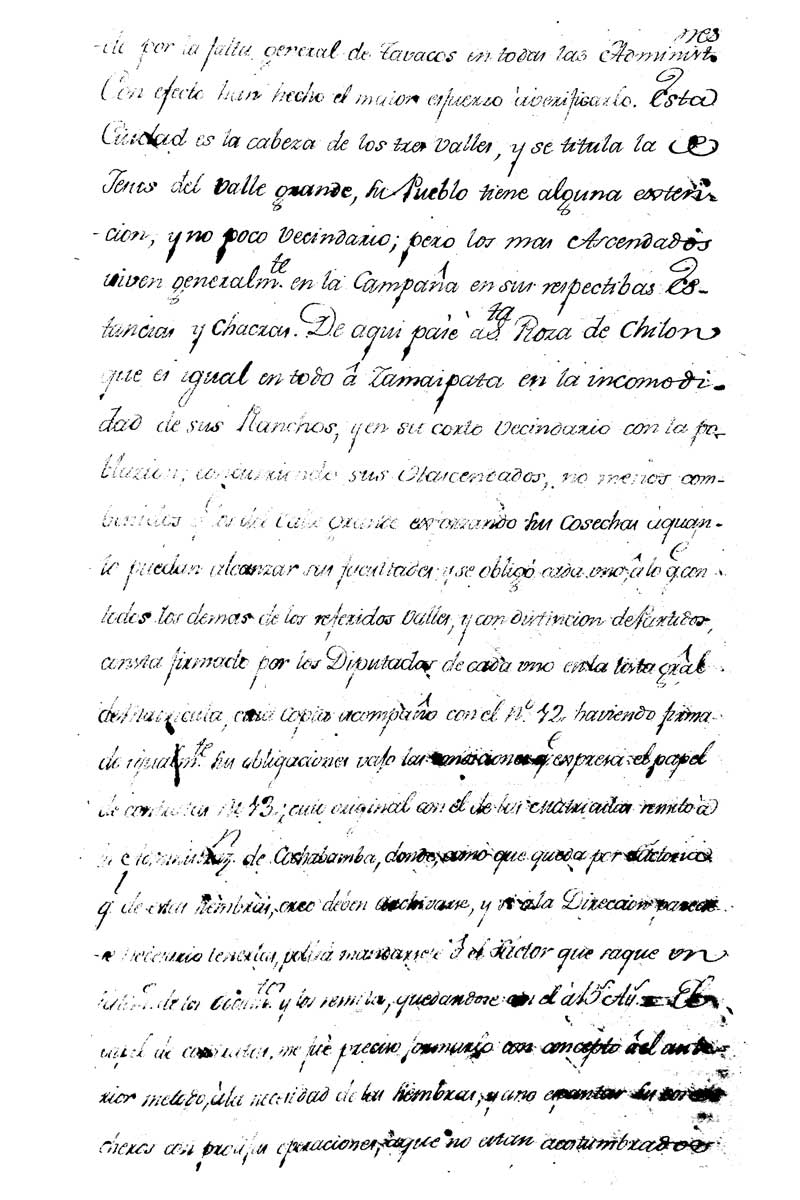 -de por la falta general de Tavacos en todas las Administ.nes
Con efecto han hecho el maior esfuerzo àverificarlo. Esta
Ciudad es la cabeza de los tres valles, y se titula la de
Jesus del valle grande, su Pueblo tiene alguna exteri-
-cion, y no poco Vecindario; pero los mas Ascendados
viven generalm.te en la Campaña en sus respectibas Es-
tancias y Chacras. De aqui pasè a S.ta Roza de Chilon
que es igual en todo â Zamaipata en la incomodi-
dad de sus Ranchos, y en su corto Vecindario con la po-
blazion; concurriendo sus Hascendados, no menos com-
benidos q.e los del Valle grande esforzando sus Cosechas à quan-
to puedan alcanzar sus facultades y se obligó cada uno, â lo q.e con
todos los demas de los referidos Valles, y con distincion de Partidos,
consta firmado por los Diputados de cada uno en la lista grâl
de Matricula, cuia Copia acompaño con el N.º 42, haviendo firma-
do igualm.te sus obligaciones vajo las condiciones q.e expresa el papel
de contratas N.º 43; cuio original con el de las Matriculas remito â
la de Cochabamba, donde, como que queda por Factoria
q.l de estas siembras, creo deben archivarse, y si a la Direccion parece
-re necesario tenerlas, podrá mandarse el Factor que saque un
de los y los remita, quedandose con el
papel de contratas, me fué preciso formarlo con concepto âl ante-
rior metodo, à la necesidad de las siembras, y a no espantar sus cose-
cheros con prolijas operaciones, à que no estan acostumbrados